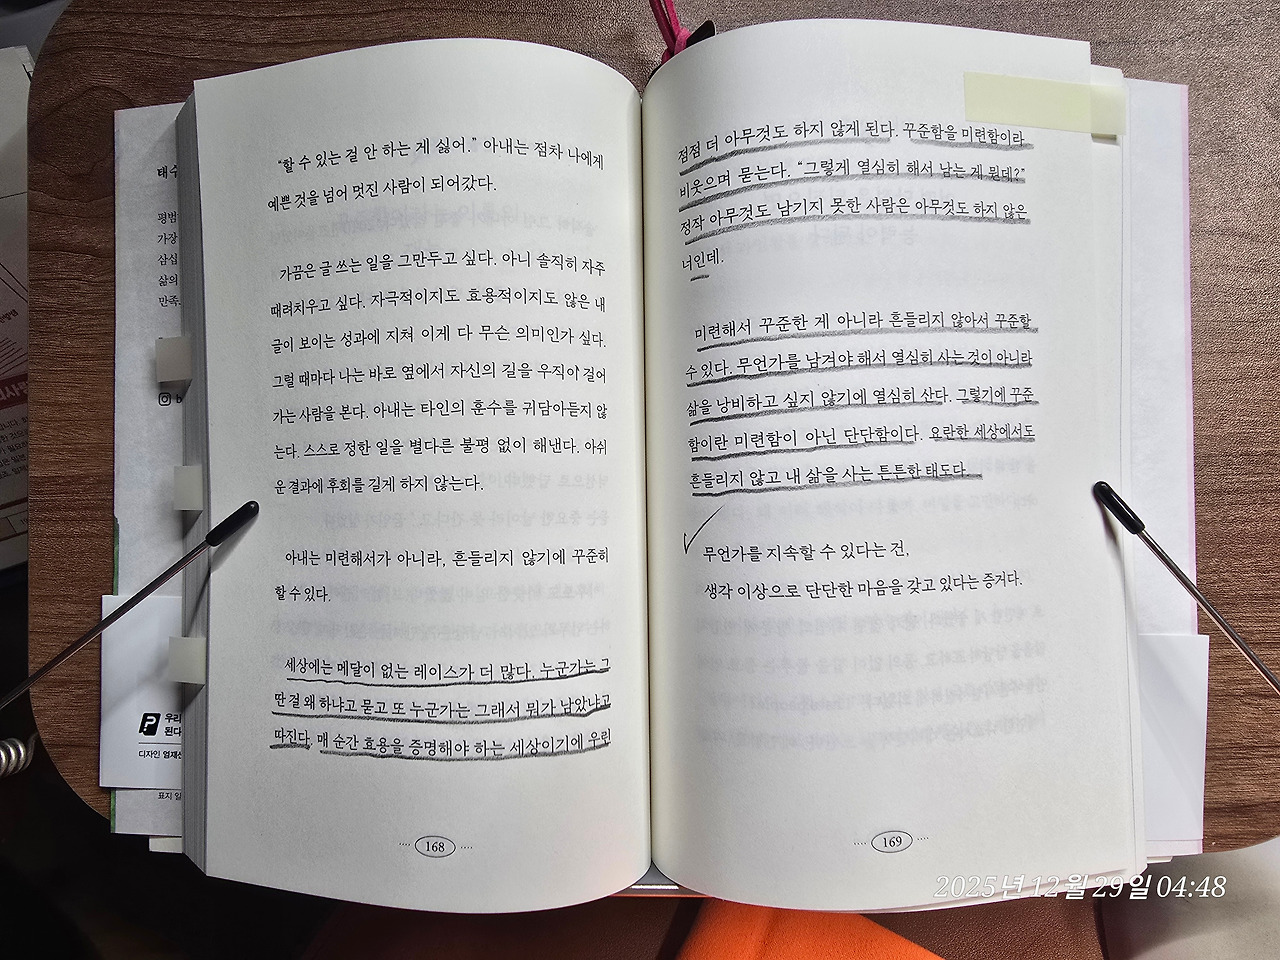 "할 수 있는 걸 안 하는 게 싫어." 아내는 점차 나에게
예쁜 것을 넘어 멋진 사람이 되어갔다.
가끔은 글 쓰는 일을 그만두고 싶다. 아니 솔직히 자주
때려치우고 싶다. 자극적이지도 효용적이지도 않은 내
글이 보이는 성과에 지쳐 이게 다 무슨 의미인가 싶다.
그럴 때마다 나는 바로 옆에서 자신의 길을 우직이 걸어
가는 사람을 본다. 아내는 타인의 훈수를 귀담아듣지 않
는다. 스스로 정한 일을 별다른 불평 없이 해낸다. 아쉬
운 결과에 후회를 길게 하지 않는다.
아내는 미련해서가 아니라, 흔들리지 않기에 꾸준히
할 수 있다.
세상에는 메달이 없는 레이스가 더 많다. 누군가는 그
딴 걸 왜 하냐고 묻고 또 누군가는 그래서 뭐가 남았냐고
따진다. 매 순간 효용을 증명해야 하는 세상이기에 우린
168
점점 더 아무것도 하지 않게 된다. 꾸준함을 미련함이라
비웃으며 묻는다. "그렇게 열심히 해서 남는 게 뭔데?"
정작 아무것도 남기지 못한 사람은 아무것도 하지 않은
너인데.
미련해서 꾸준한 게 아니라 흔들리지 않아서 꾸준할
수 있다. 무언가를 남겨야 해서 열심히 사는 것이 아니라
삶을 낭비하고 싶지 않기에 열심히 산다. 그렇기에 꾸준
함이란 미련함이 아닌 단단함이다. 요란한 세상에서도
흔들리지 않고 내 삶을 사는 튼튼한 태도다.
무언가를 지속할 수 있다는 건,
생각 이상으로 단단한 마음을 갖고 있다는 증거다.
169
태수
평범
가장
삼십
삶의
만족
우리
된다
디자인 엄재선
표지 일
2025년 12월 29일 04:48